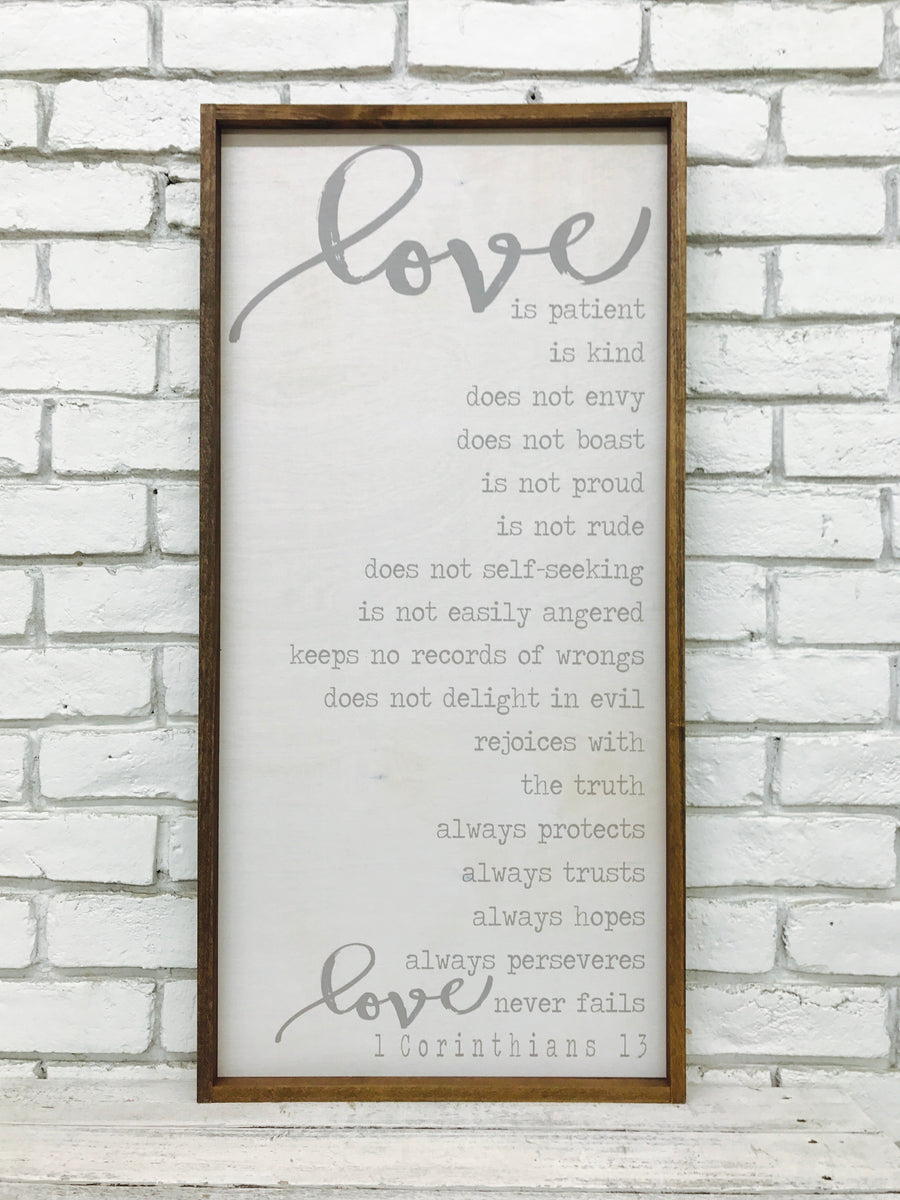 love
is patient
is kind
does not envy
does not boast
is not proud
is not rude
does not self-seeking
is not easily angered
keeps no records of wrongs
does not delight in evil
rejoices with
the truth
always protects
always trusts
always hopes
always perseveres
love never fails
1 Corinthians 13